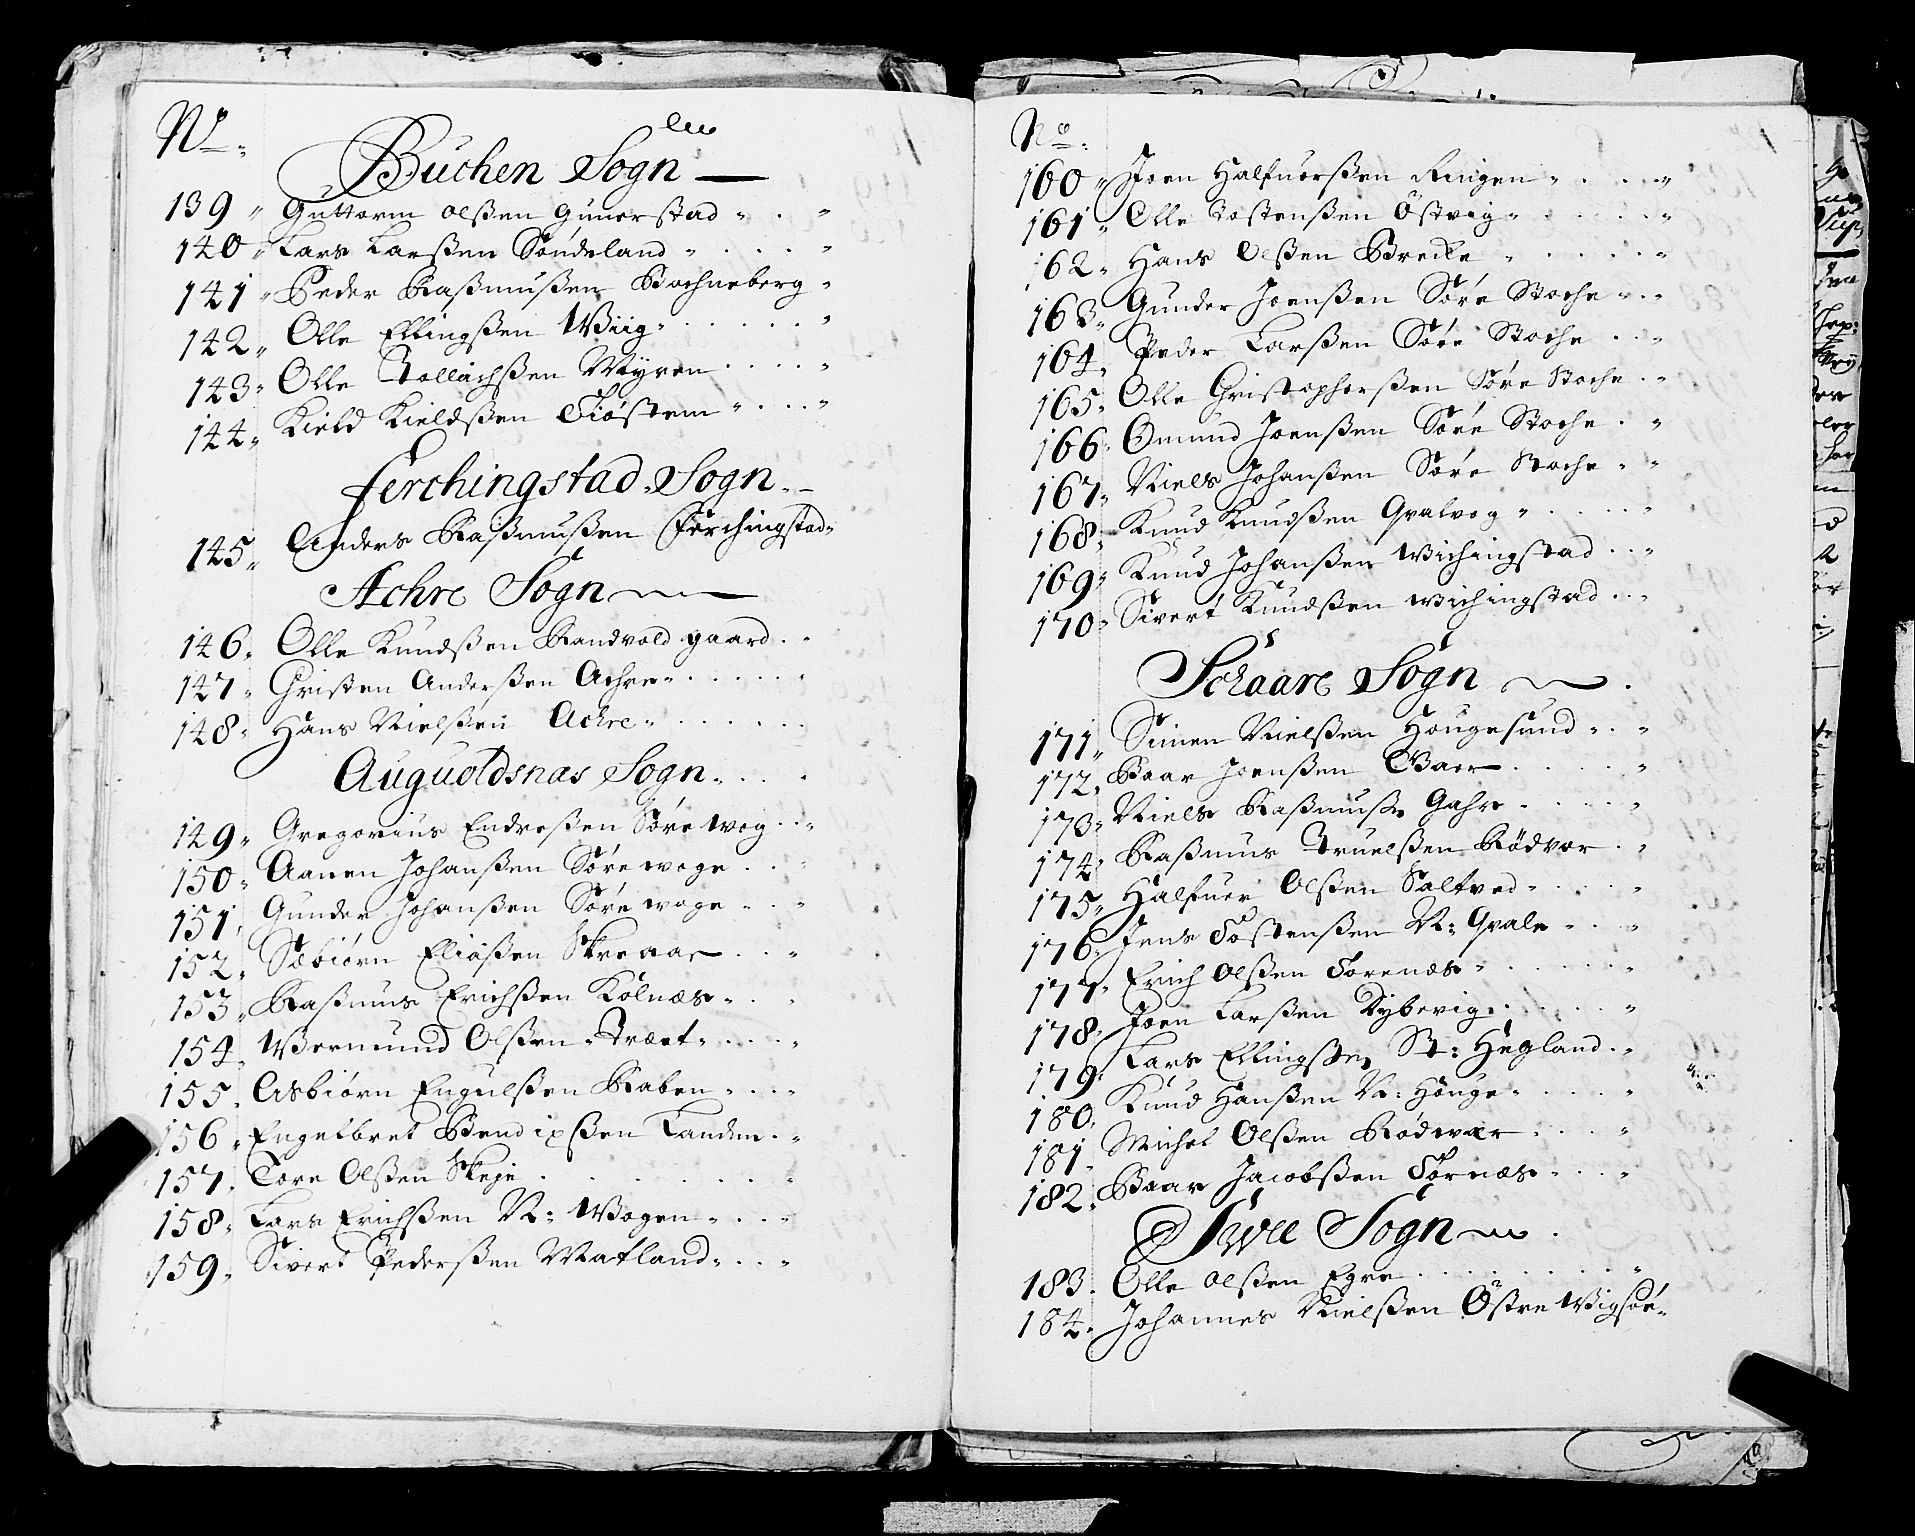 No.
Buchen Sogn
139 Guttorm olßen Gunerstad
140 Lars Larßen Søndeland
141 Peder Raßmußen Bochneberg
142 Olle Ellingßen Wiig
143 Olle Tollachßen Myren
144 Kield Kieldßen Tiøstem
Ferchingstad Sogn
145 Anders Raßmußen Ferchingstad
Achre Sogn
146 Olle Knudßen Sandvold gaard
147 Christen Anderßen Achre
148 Hans Nielßen Achre
Auguoldsnas Sogn
149 Gregorius Endreßen Søre wog
150 Aanen Johanßen Søre woge
151 Gunder Johanßen Søre woge
152 Sæbiørn Eliaßen Skreaar
153 Raßmus Erichßen Kolnæs
154 Wermund Olßen Træet
155 Asbiørn Engulßen Raben
156 Engelbret Bendixßen Landen
157 Tore Olßen Skeje
158 Lars Erichßen N: Wogen
159 Sivert Pederßen Watland
No.
160 Joen Halfuorßen Ringen
161 Olle Tostenßen Østvig
162 Hans Olßen Brecke
163 Gunder Joenßen Søre Stoche
164 Peder Larßen Søre Stoche
165 Olle Christopherßen Søre Stoche
166 Omund Joenßen Søre Stoche
167 Niels Johanßen Søre Stoche
168 Knud Knudßen Qvalvog
169 Knud Johanßen Wichingstad
170 Sivert Knudßen Wichingstad
Schaare Sogn
171 Simen Nielßen Hougesund
172 Baar Joenßen
173 Niels Raßmusß Gahre
174 Raßmus Truelßen Rødvor
175 Halfuer Olßen Saltved
176 Jens Tostenßen N: Qvale
177 Erich Olßen Tornæs
178 Joen Larßen Dybevig
179 Lars Ellingßen St: Hegland
180 Knud Hanßen N: Houge
181 Michel Olßen Rødwær
182 Baar Jacobßen Tornæs
Sogn
183 Olle olßen Egre
184 Johannes Nielßen Østre Wigsøe